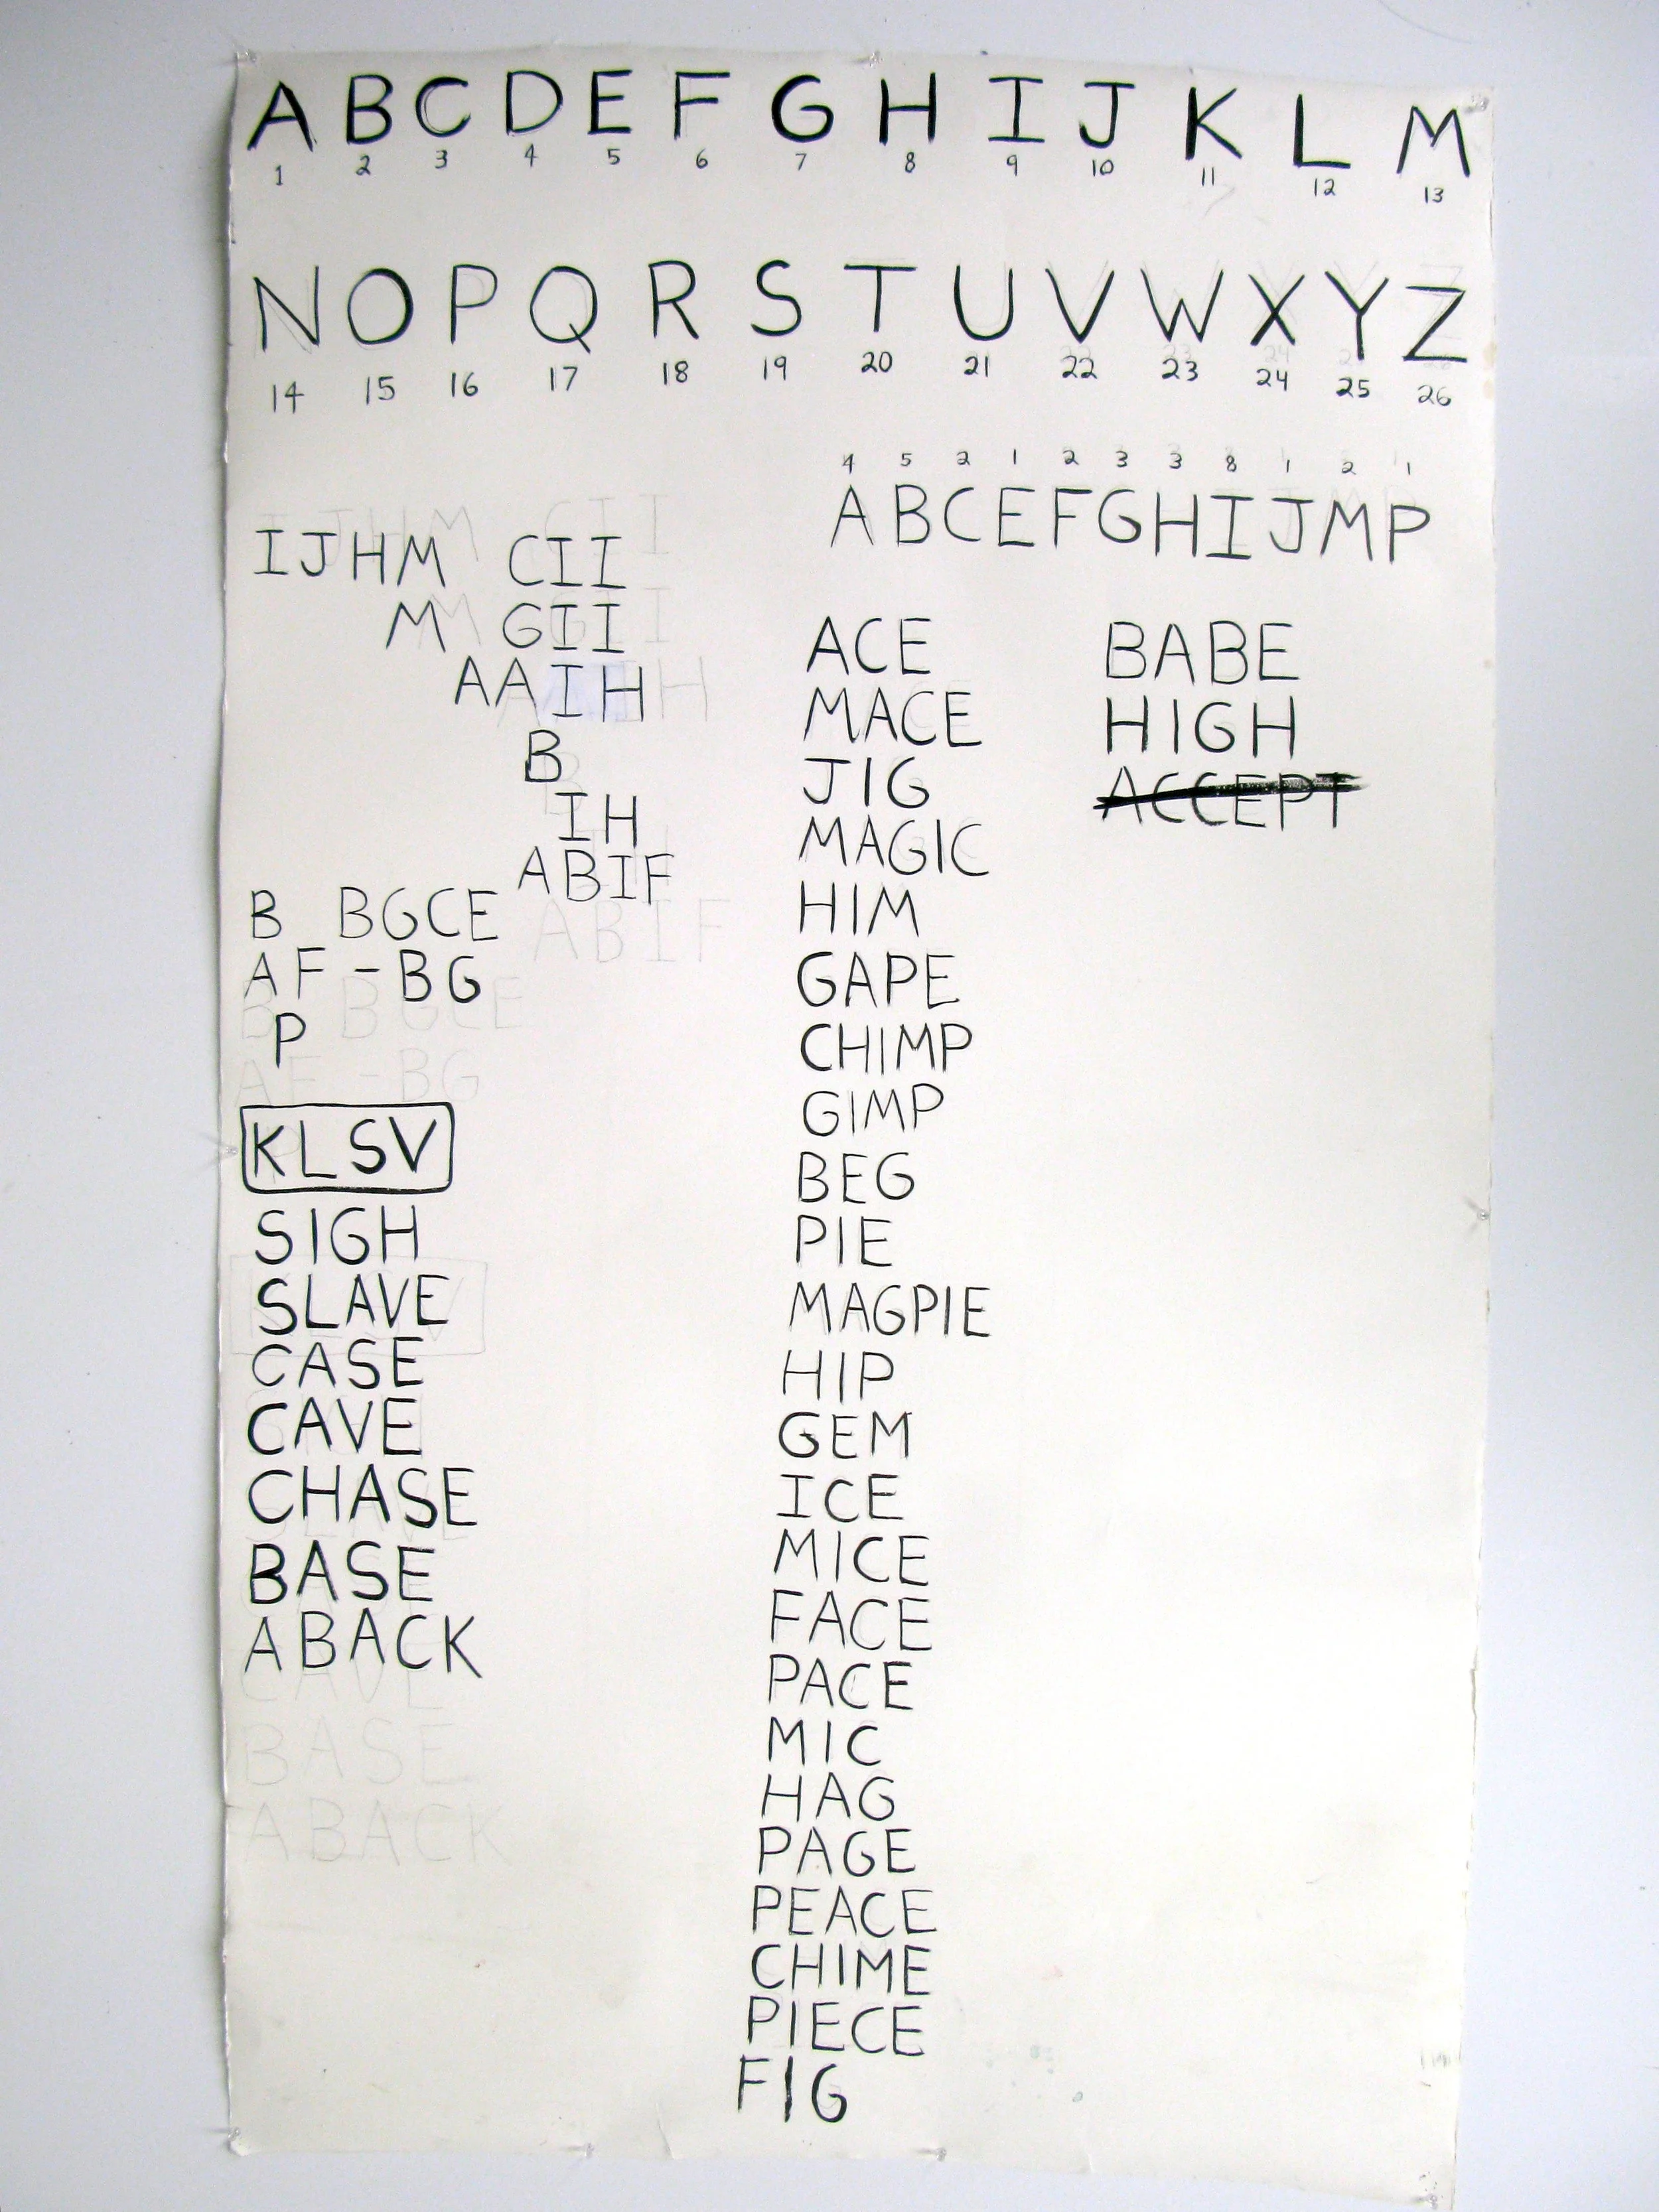 A B C D E F G H I J K L M
1 2 3 4 5 6 7 8 9 10 11 12 13
N O P Q R S T U V W X Y Z
14 15 16 17 18 19 20 21 22 23 24 25 26
IJHM CII
M GII
AAIH
B
IH
ABIF
B BGCE
AF -BG
P
KLSV
SIGH
SLAVE
CASE
CAVE
CHASE
BASE
ABACK
CAVE
BASE
ABACK
4 5 2 1 2 3 3 8 1 2 1
A B C E F G H I J M P
ACE
MACE
JIG
MAGIC
HIM
GAPE
CHIMP
GIMP
BEG
PIE
MAGPIE
HIP
GEM
ICE
MICE
FACE
PACE
MIC
HAG
PAGE
PEACE
CHIME
PIECE
FIG
BABE
HIGH
ACCEPT